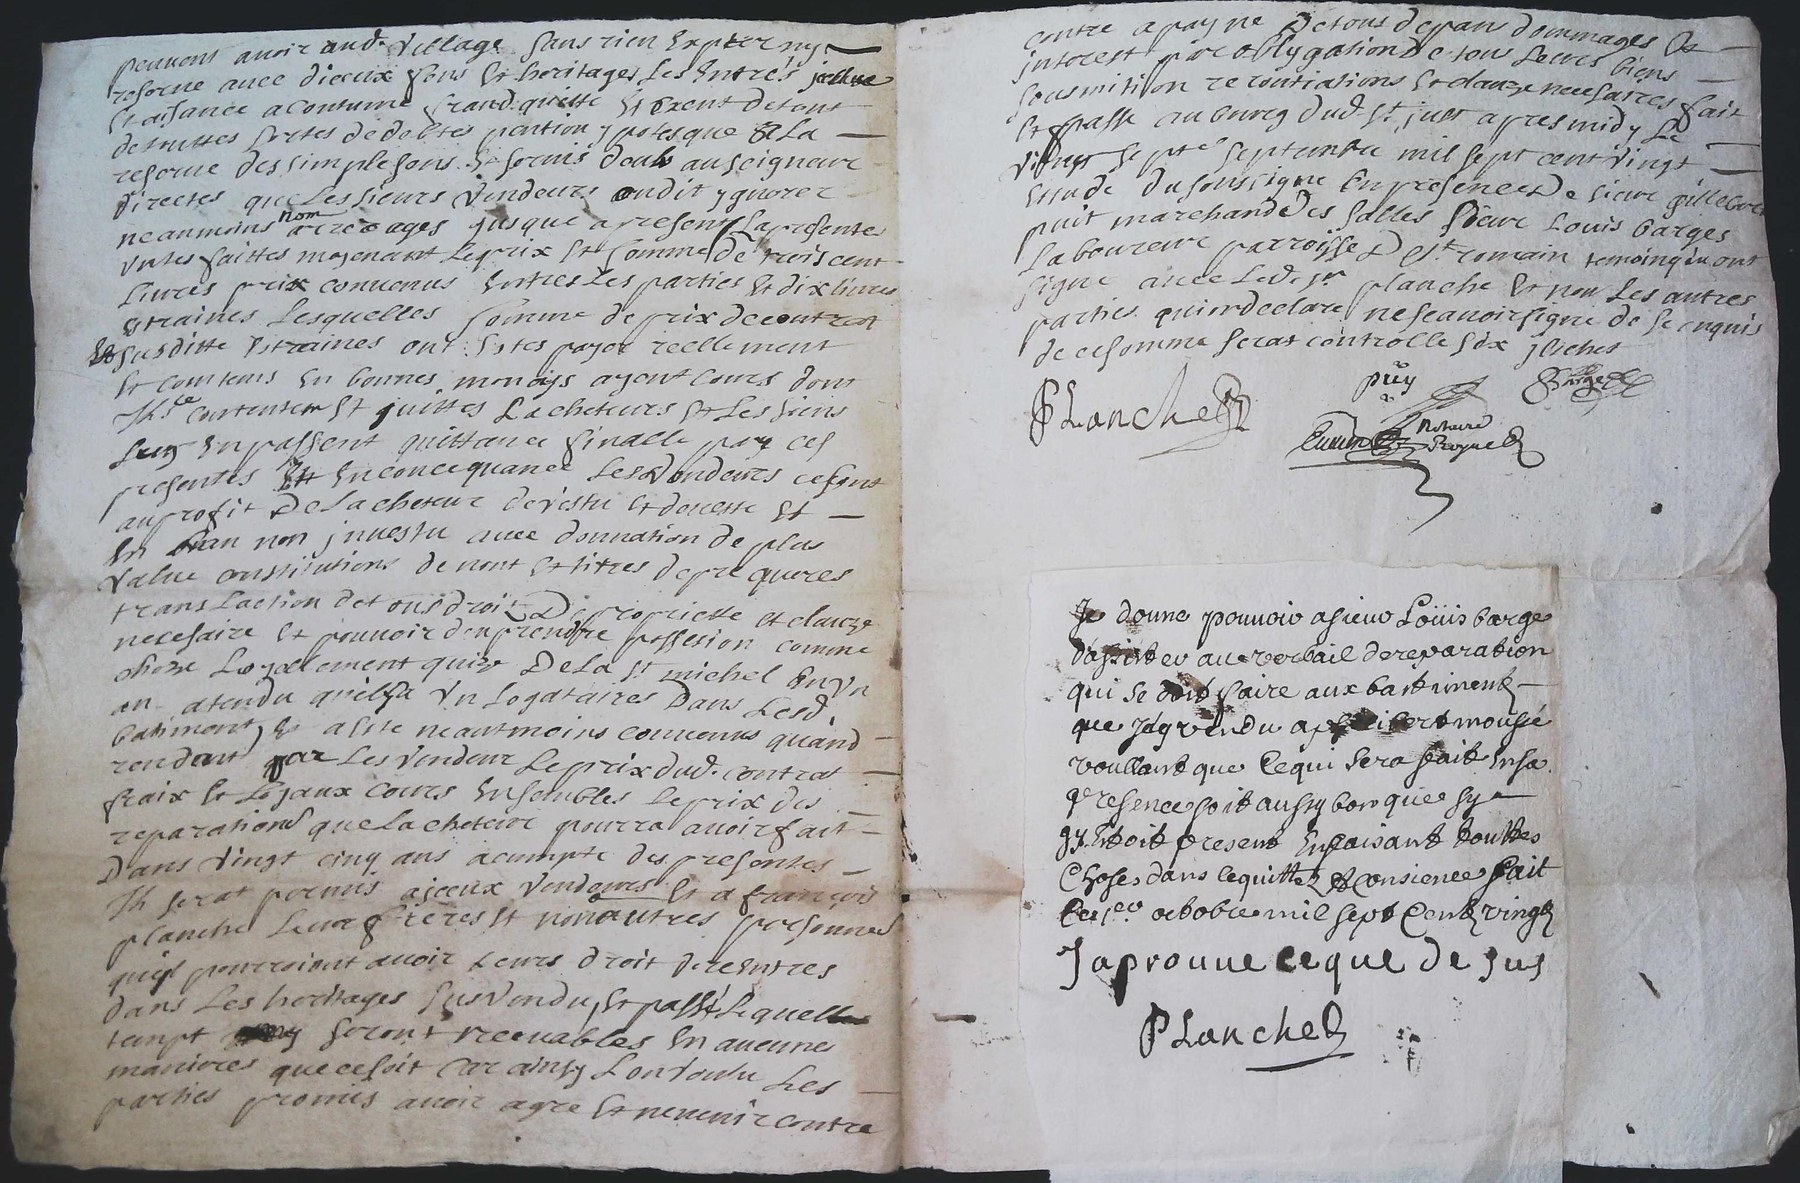 peuvent avoir aud. village sans rien Excepter ny
reserve avec diceux fons Et heritages Les Entrés
Et aisance acoutumé franc quitte Et Exent de tout
de touttes sortes de debtes pention ypotesque Et La
reserve des simples sens Et servis deub au seigneur
directes que Les sieurs Vendeurs ont dit ygnorer
neanmoins nom arreages jusque a present La presente
Vente faittes moyenant Le prix Et somme De trois cent
Livres prix convenus Entres Les parties Et dix livres
Estraines Lesquelles somme de prix de contrat
Et susditte Estraines ont Estes payer reellement
Et contens En bonnes monoys ayent cours dont
contentem Et quittes Lacheteurs Et Les siens
Luy En passent quittance finalle par ces
presentes Et En concequance Les Vendeurs
au profit De Lacheteur devestu Et
En non jnvestu avec donnation de plus
Value constitutions de nom Et titres de prequeres
translaction de tous droit De propriette et clauze
necesaire Et pouvoir den prendre possesion comme
choze Loyallement quize De La St. michel En Un
an atendu quil y a Un Logataires Dans Lesd.
batiment, Et a Esté neautmoins convenus quand
rendant par Les Vendeur Le prix dud. contrat
fraix Et Loyaux cours Ensembles Le prix des
reparations que Lacheteur pourra avoir fait
Dans vingt cinq ans a compte des presentes
Il serat permis a jceux Vendeurs Et a francois
planche Leur frères Et non autres personnes
quil pourroient avoir Leurs droit de rentres
dans Les heritages sus Vendu, Et passé Lequelle
tempt seront recevables En aucune
manieres que ce soit car ainsy Lont voulu Les
parties promis avoir agre Et ne venir contre
contre a payne De tous depans dommages Et
jnterest par oblygation De tous Leurs biens
sousmition renontiasions Et clauze necesaires fait
Et passe au bourg dud. St. just apres midy Le
vingt sept septembre mil sept cent vingt
Etude du soussigne En presence De sieur
puit marchand Des salles sieur Louis barges
Laboureur parroisse De St. romain temoing qui ont
signe avec Led. sr. planche Et non Les autres
parties qui ont declare ne scavoir signe de ce Enquis
de ce somme serat controlle
PLanche
puy
Barge
Notaire
Royal
Je donne pouvoir a sieur Loüis barge
dassister au verbail de reparation
qui se doit faire aux bastiment
que jay vendu a mousié
voullant que ce qui sera fait En sa
presence soit aussy bon que sy
jy Etoit present En faisant touttes
choses dans lequitte Et consience fait
Ce octobre mil sept Cent vingt
Japrouve ce que de sus
PLanche